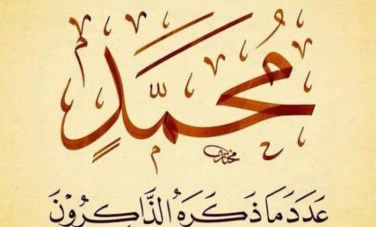 مُحَمَّدٍ
عَدَدَ مَا ذَكَرَهُ الذَّاكِرُونَ